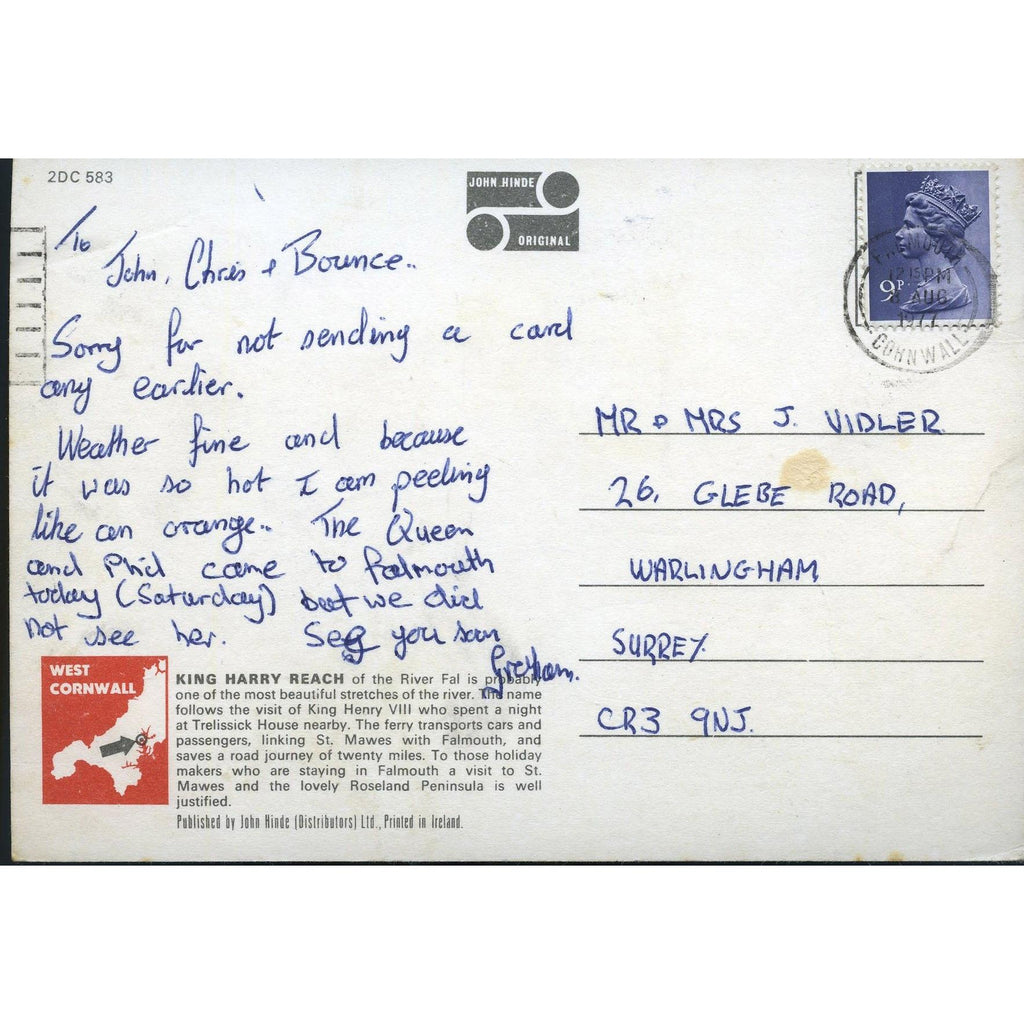 2DC 583
JOHN HINDE
ORIGINAL
To
John, Chris + Bounce..
Sorry for not sending a card
any earlier.
Weather fine and because
it was so hot I am peeling
like an orange.. The Queen
and Phil came to Falmouth
today (Saturday) but we did
not see her. See you soon
Graham.
9P
FALMOUTH
12 15 PM
8 AUG
1977
CORNWALL
MR & MRS J. VIDLER
26, GLEBE ROAD,
WARLINGHAM
SURREY.
CR3 9NJ.
WEST
CORNWALL
KING HARRY REACH of the River Fal is probably
one of the most beautiful stretches of the river. The name
follows the visit of King Henry VIII who spent a night
at Trelissick House nearby. The ferry transports cars and
passengers, linking St. Mawes with Falmouth, and
saves a road journey of twenty miles. To those holiday
makers who are staying in Falmouth a visit to St.
Mawes and the lovely Roseland Peninsula is well
justified.
Published by John Hinde (Distributors) Ltd., Printed in Ireland.